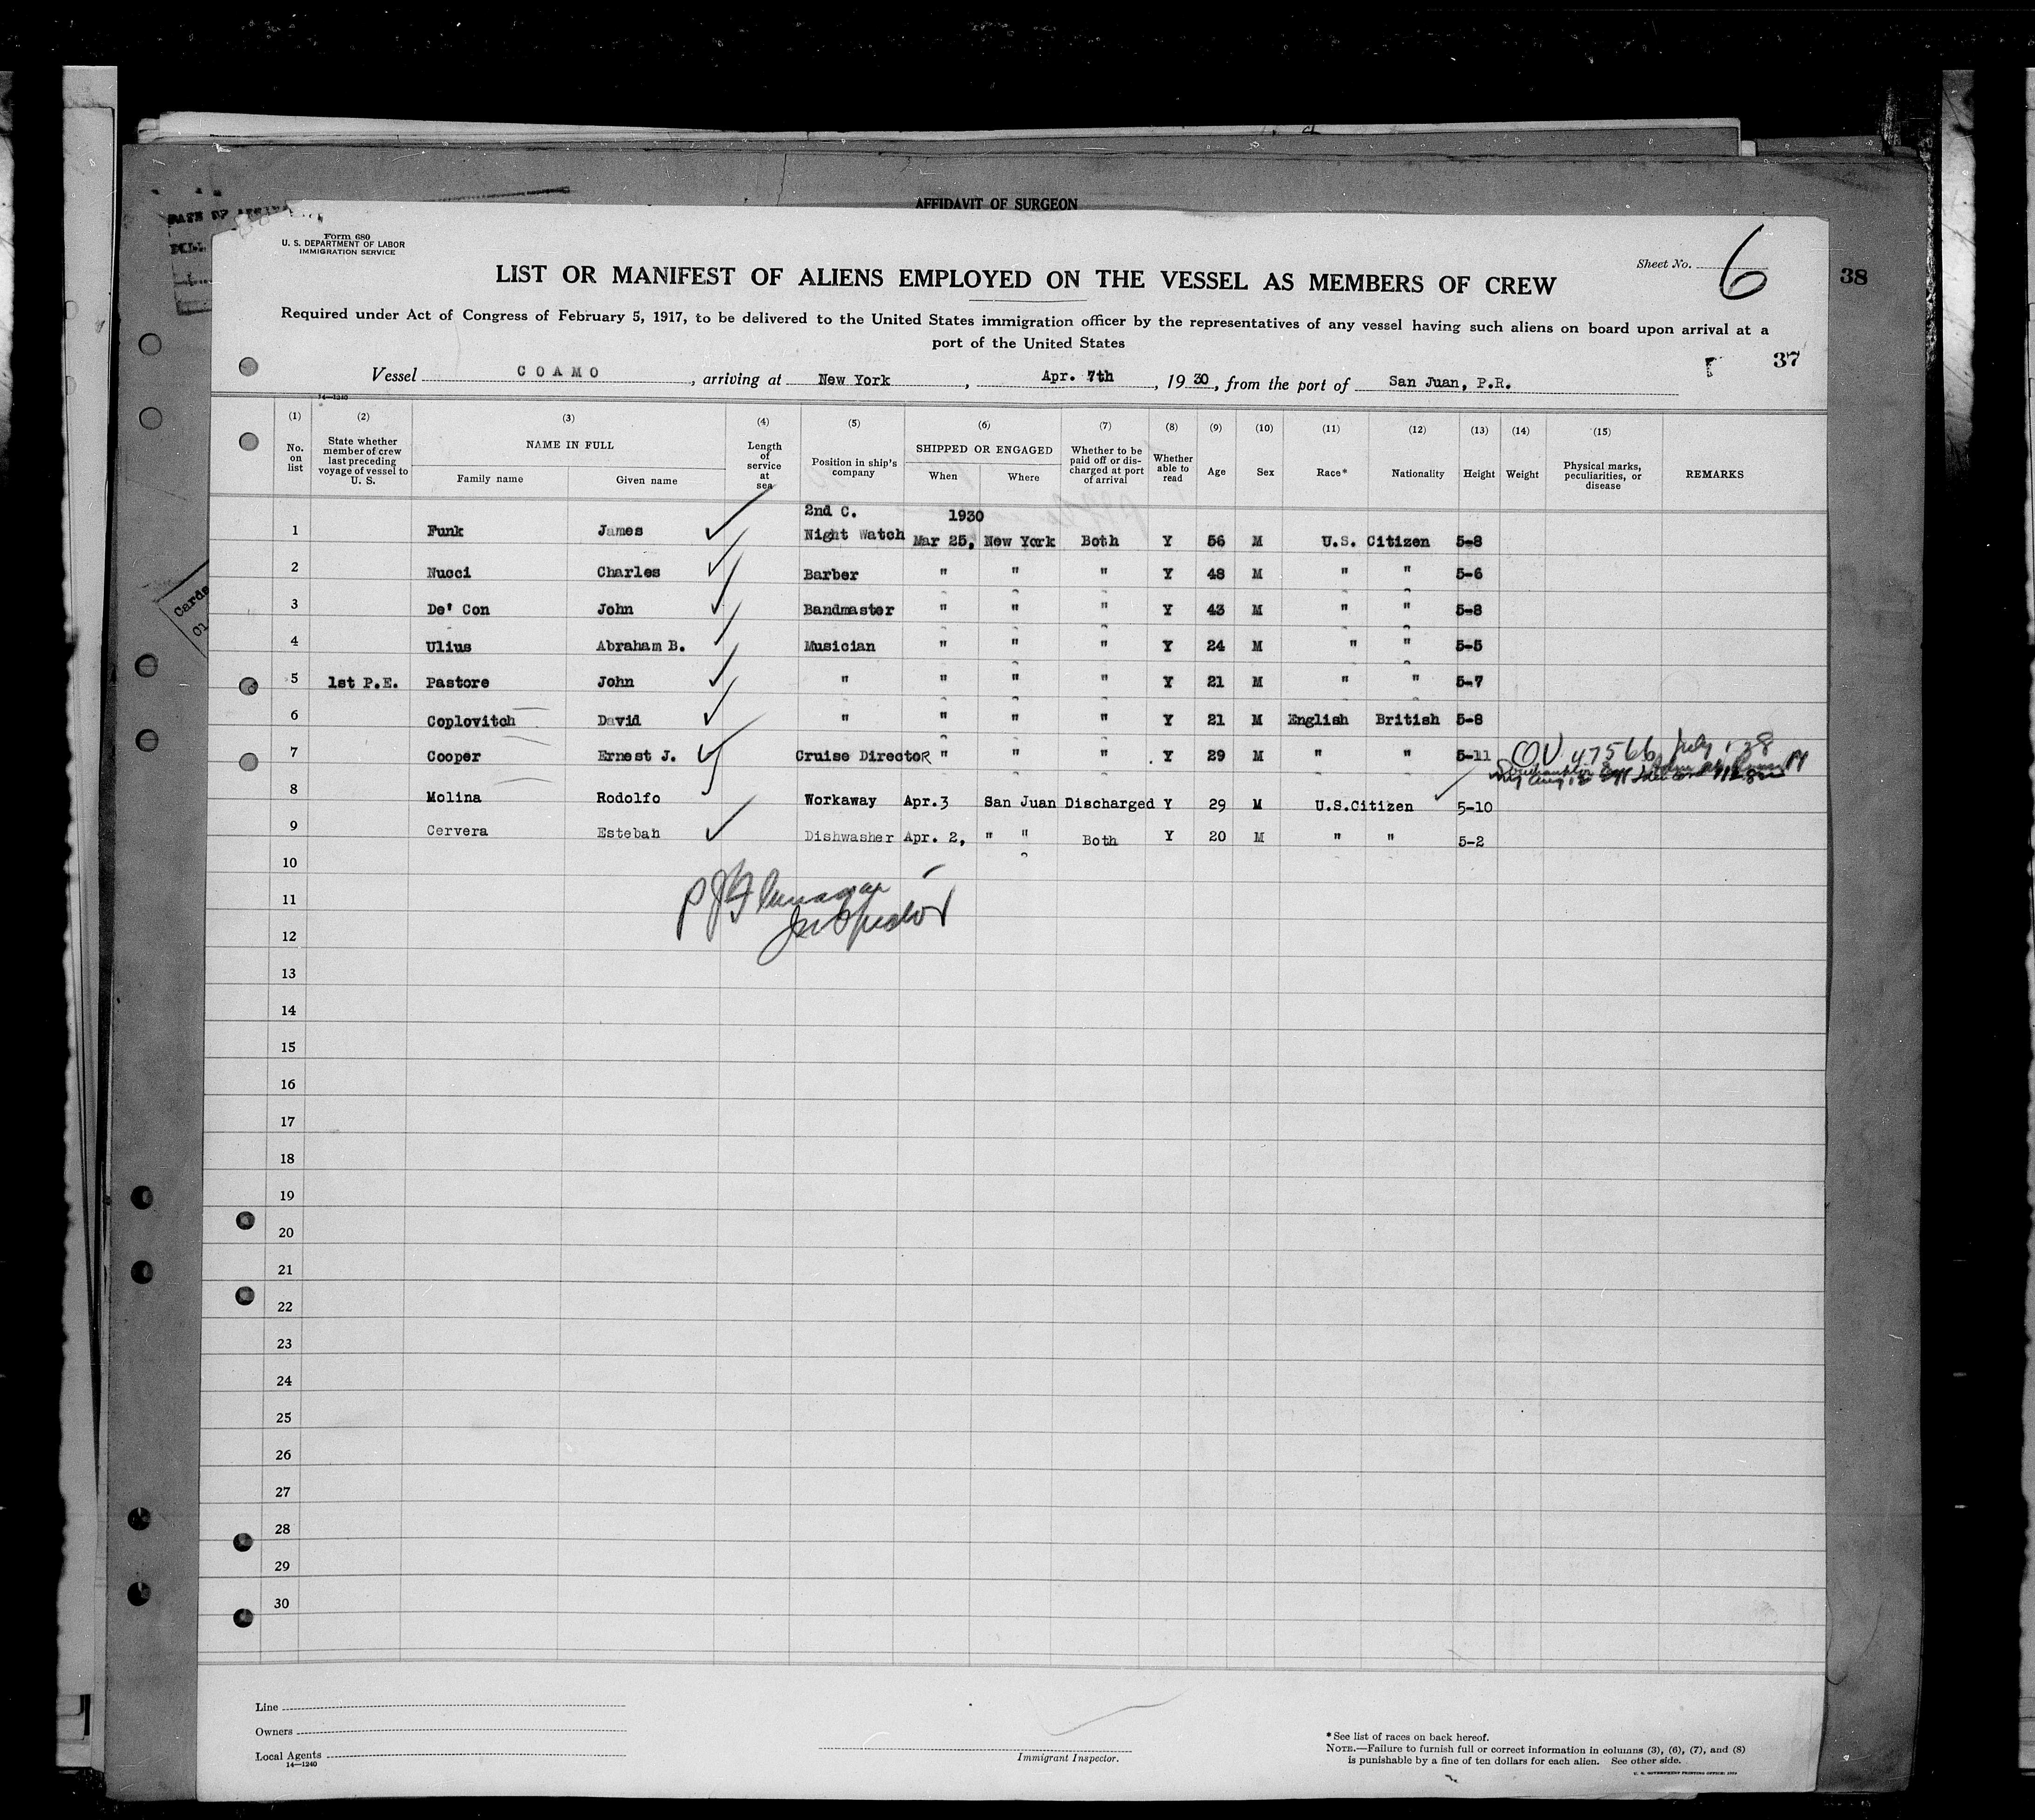 AFFIDAVIT OF SURGEON
Form 680
U. S. DEPARTMENT OF LABOR
IMMIGRATION SERVICE
Sheet No. 6
38
LIST OR MANIFEST OF ALIENS EMPLOYED ON THE VESSEL AS MEMBERS OF CREW
Required under Act of Congress of February 5, 1917, to be delivered to the United States immigration officer by the representatives of any vessel having such aliens on board upon arrival at a
port of the United States
37
Vessel COAMO, arriving at New York, Apr. 7th, 1930, from the port of San Juan, P.R.
14—1240
(1) No. on list (2) State whether member of crew last preceding voyage of vessel to U. S. (3) NAME IN FULL Family name Given name (4) Length of service at sea (5) Position in ship's company (6) SHIPPED OR ENGAGED When Where (7) Whether to be paid off or discharged at port of arrival (8) Whether able to read (9) Age (10) Sex (11) Race* (12) Nationality (13) Height (14) Weight (15) Physical marks, peculiarities, or disease REMARKS
2nd C. 1930
1 Funk James Night Watch Mar 25, New York Both Y 56 M U.S. Citizen 5-8
2 Nucci Charles Barber " " " Y 48 M " " 5-6
3 De' Con John Bandmaster " " " Y 43 M " " 5-8
4 Ulius Abraham B. Musician " " " Y 24 M " " 5-5
5 1st P.E. Pastore John " " " " Y 21 M " " 5-7
6 Coplovitch David " " " " Y 21 M English British 5-8
7 Cooper Ernest J. Cruise Director " " " Y 29 M " " 5-11 COV 47566 July
8 Molina Rodolfo Workaway Apr.3 San Juan Discharged Y 29 M U.S.Citizen 5-10
9 Cervera Esteban Dishwasher Apr. 2, " " Both Y 20 M " " 5-2
10
11
Inspector
12
13
14
15
16
17
18
19
20
21
22
23
24
25
26
27
28
29
30
Line
Owners
Local Agents
14—1240
Immigrant Inspector.
* See list of races on back hereof.
NOTE.—Failure to furnish full or correct information in columns (3), (6), (7), and (8)
is punishable by a fine of ten dollars for each alien. See other side.
Cards